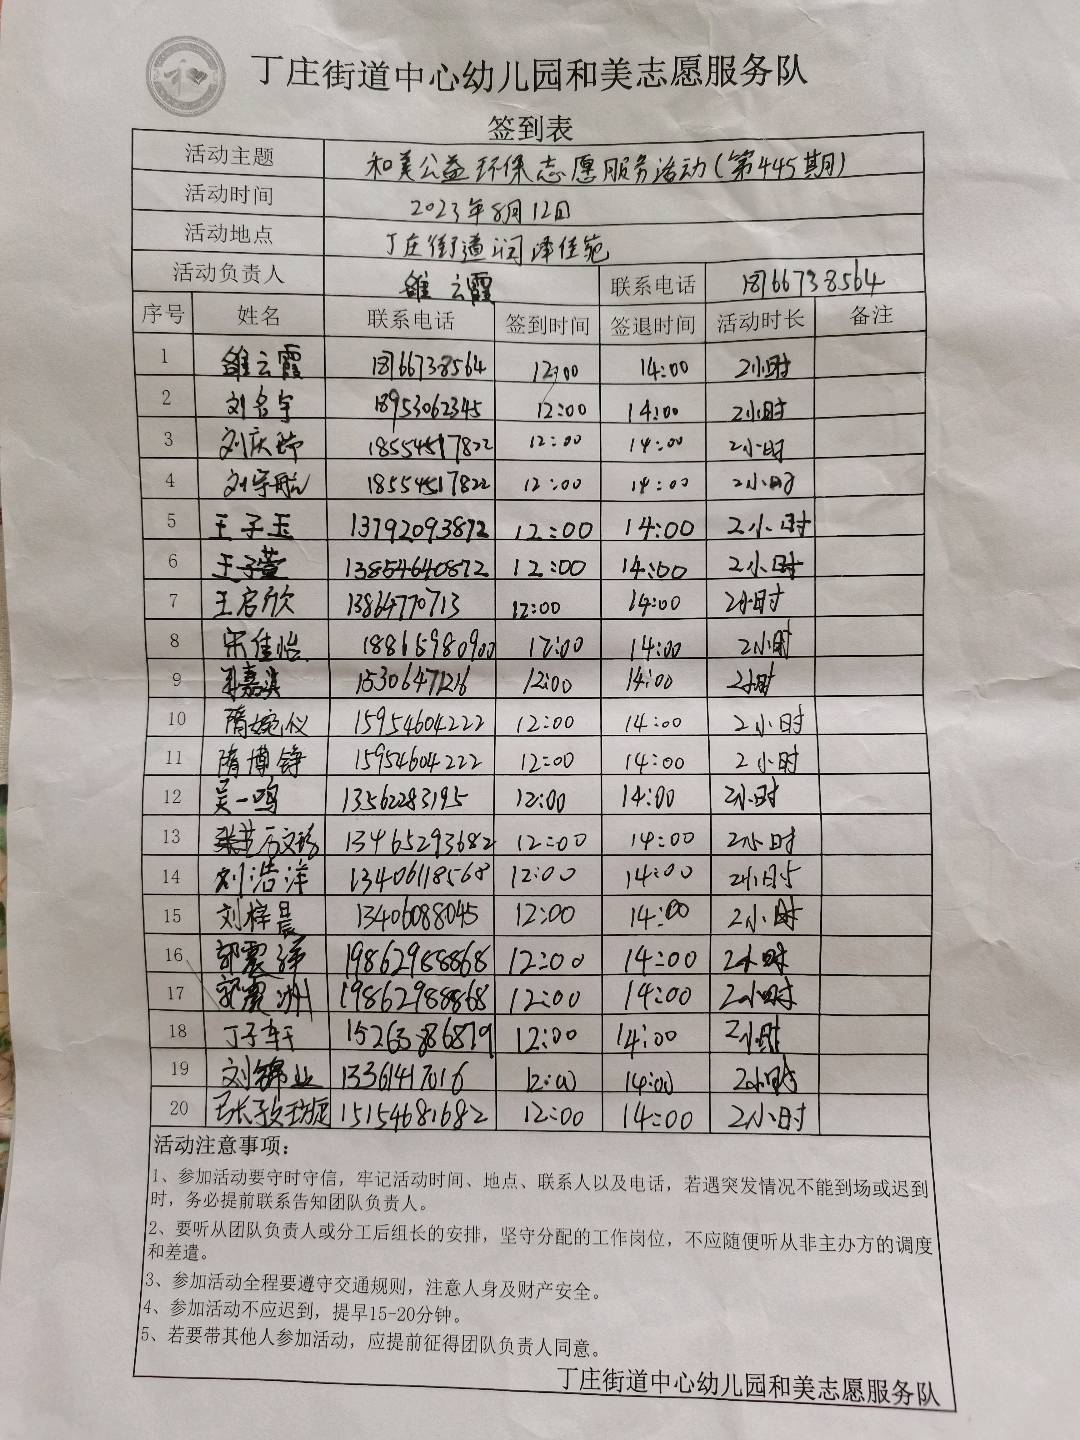 丁庄街道中心幼儿园和美志愿服务队
签到表
活动主题 和美公益环保志愿服务活动(第445期)
活动时间 2023年8月12日
活动地点 丁庄街道润泽佳苑
活动负责人 云霞 联系电话 18766738564
序号 姓名 联系电话 签到时间 签退时间 活动时长 备注
1 云霞 18766738564 12:00 14:00 2小时
2 刘名宇 18953062345 12:00 14:00 2小时
3 刘庆 18554517822 12:00 14:00 2小时
4 刘宇航 18554517822 12:00 14:00 2小时
5 王子玉 13792093872 12:00 14:00 2小时
6 王子萱 13854640872 12:00 14:00 2小时
7 王启欣 13864770713 12:00 14:00 2小时
8 宋佳怡 18865980900 12:00 14:00 2小时
9 嘉淇 15306471216 12:00 14:00 2小时
10 隋婉仪 15954604222 12:00 14:00 2小时
11 隋博铮 15954604222 12:00 14:00 2小时
12 吴一鸣 13562283195 12:00 14:00 2小时
13 13465293682 12:00 14:00 2小时
14 刘浩洋 13406118568 12:00 14:00 2小时
15 刘梓晨 13406088045 12:00 14:00 2小时
16 19862988868 12:00 14:00 2小时
17 19862988868 12:00 14:00 2小时
18 丁子轩 12:00 14:00 2小时
19 刘锦业 13361417016 12:00 14:00 2小时
20 15154681682 12:00 14:00 2小时
活动注意事项：
1、参加活动要守时守信，牢记活动时间、地点、联系人以及电话，若遇突发情况不能到场或迟到
时，务必提前联系告知团队负责人。
2、要听从团队负责人或分工后组长的安排，坚守分配的工作岗位，不应随便听从非主办方的调度
和差遣。
3、参加活动全程要遵守交通规则，注意人身及财产安全。
4、参加活动不应迟到，提早15-20分钟。
5、若要带其他人参加活动，应提前征得团队负责人同意。
丁庄街道中心幼儿园和美志愿服务队